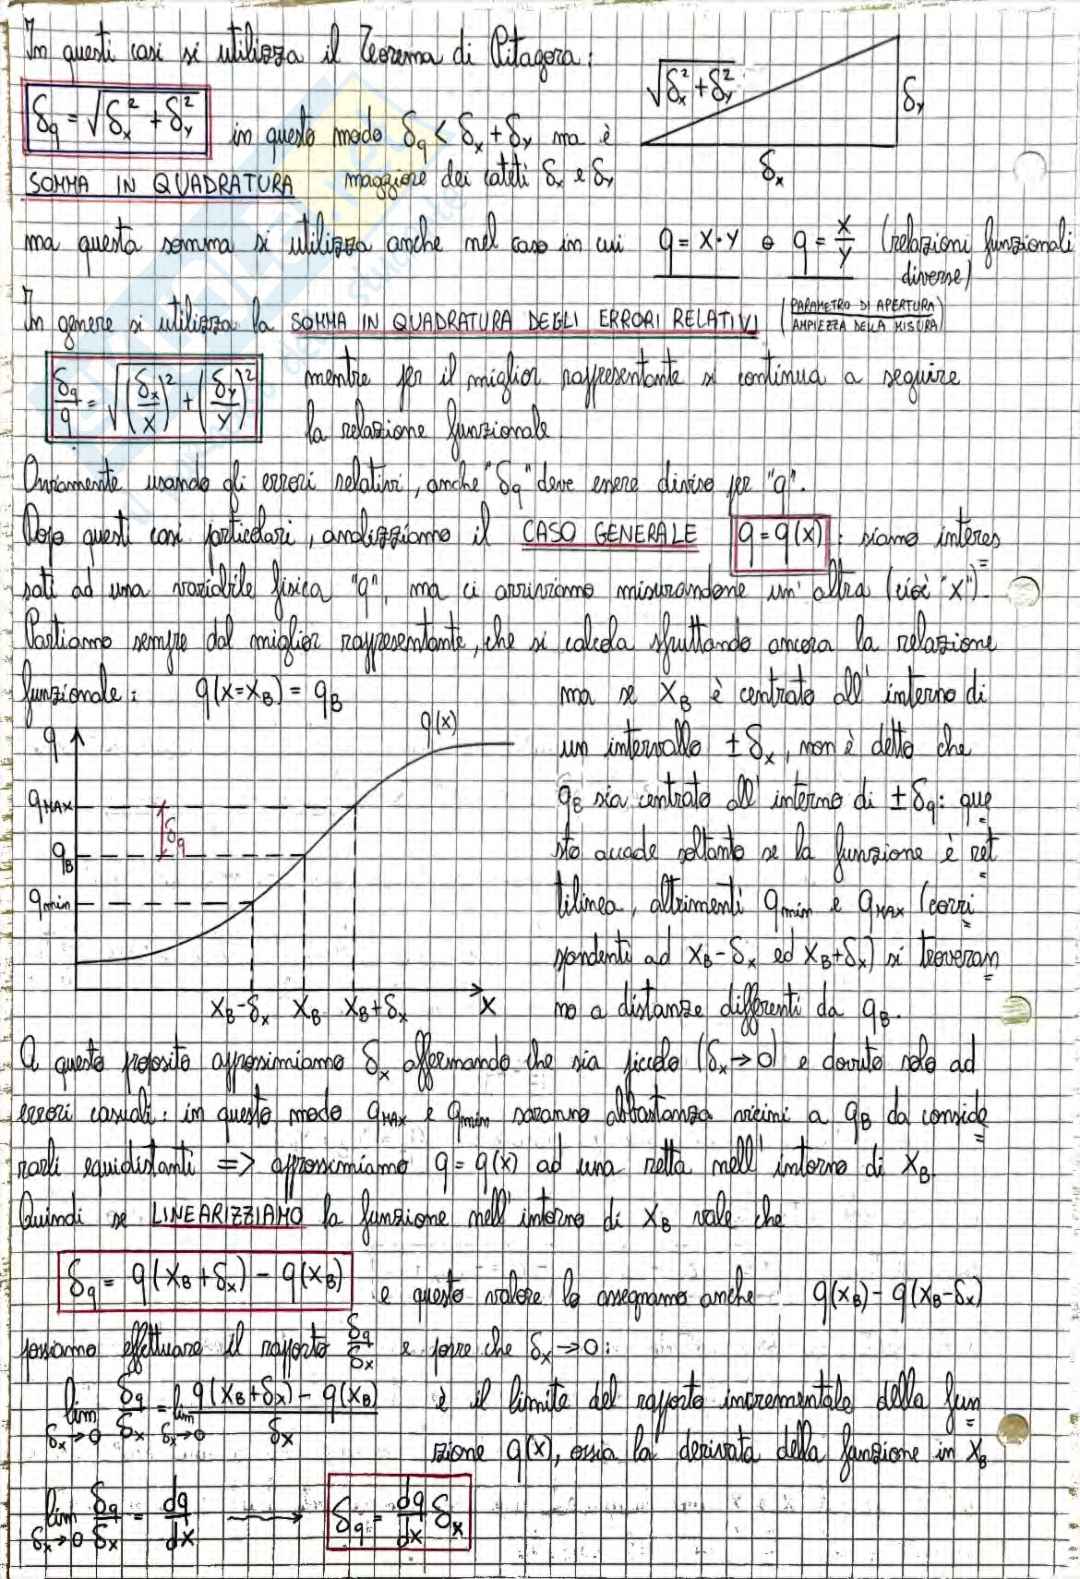 In questi casi si utilizza il Teorema di Pitagora:
√δx² + δy²
δy
δx
δq = √δx² + δy² in questo modo δq < δx + δy ma è
SOMMA IN QUADRATURA maggiore dei cateti δx e δy
ma questa somma si utilizza anche nel caso in cui q = x·y o q = x/y (relazioni funzionali
diverse)
In genere si utilizza la SOMMA IN QUADRATURA DEGLI ERRORI RELATIVI (PARAMETRO DI APERTURA / AMPIEZZA DELLA MISURA)
δq/q = √(δx/x)² + (δy/y)² mentre per il miglior rappresentante si continua a seguire
la relazione funzionale
Ovviamente usando gli errori relativi, anche "δq" deve essere diviso per "q".
Dopo questi casi particolari, analizziamo il CASO GENERALE q = q(x) : siamo interes
sati ad una variabile fisica "q", ma ci arriviamo misurandone un'altra (cioè "x")
Partiamo sempre dal miglior rappresentante, che si calcola sfruttando ancora la relazione
funzionale: q(x=xB) = qB ma se xB è centrato all'interno di
un intervallo ± δx, non è detto che
qB sia centrato all'interno di ± δq: que
sto accade soltanto se la funzione è ret
tilinea, altrimenti qmin e qMAX (corri
spondenti ad xB-δx ed xB+δx) si troveran
no a distanze differenti da qB.
q
q(x)
qMAX
δq
qB
qmin
xB-δx xB xB+δx x
A questo proposito approssimiamo δx affermando che sia piccolo (δx→0) e dovuto solo ad
errori casuali: in questo modo qMAX e qmin saranno abbastanza vicini a qB da conside
rarli equidistanti => approssimiamo q = q(x) ad una retta nell'intorno di xB.
Quindi se LINEARIZZIAMO la funzione nell'intorno di xB vale che
δq = q(xB+δx) - q(xB) e questo valore lo assegnamo anche q(xB) - q(xB-δx)
possiamo effettuare il rapporto δq/δx e porre che δx→0:
lim δx→0 δq/δx = lim δx→0 q(xB+δx) - q(xB) / δx è il limite del rapporto incrementale della fun
zione q(x), ossia la derivata della funzione in xB
lim δx→0 δq/δx = dq/dx → δq = dq/dx δx